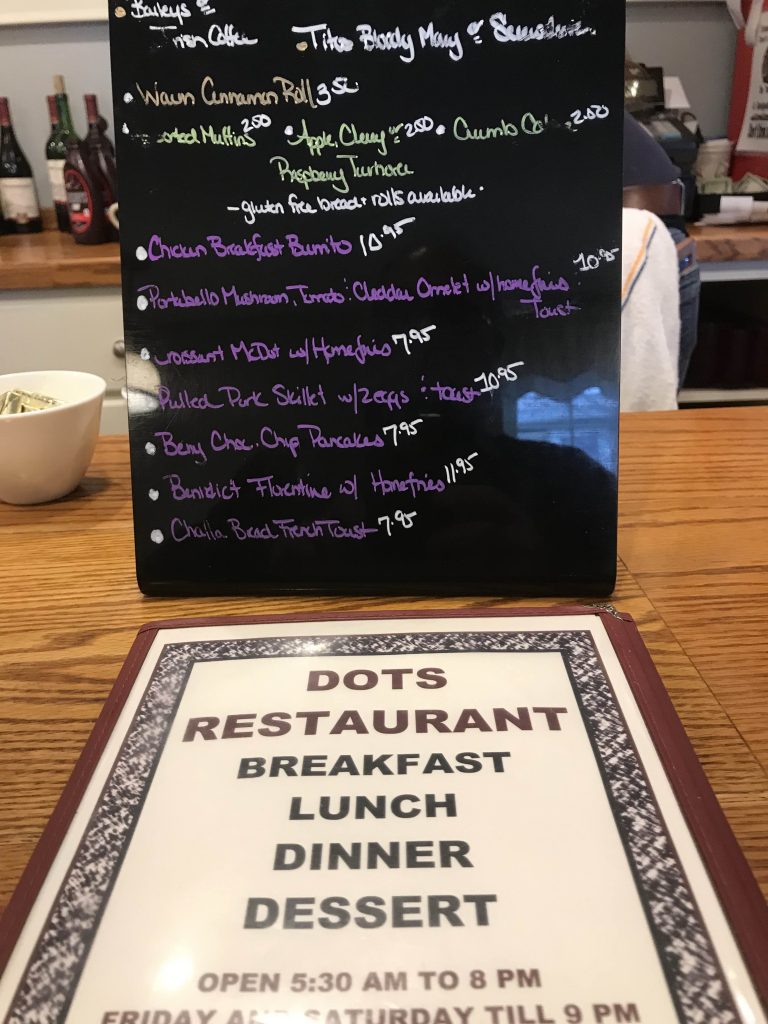 Baileys or
Irish Coffee
Titos Bloody Mary or
Warm Cinnamon Roll 3.50
Muffins 2.50
Apple, Cherry or 2.50
Crumb 2.50
Raspberry Turnover
- gluten free bread + rolls available.
Chicken Breakfast Burrito 10.95
Portabello Mushroom, Tomato : Cheddar Omelet w/ homefries : 10.95
Toast
Croissant McDot w/ Homefries 7.95
Pulled Pork Skillet w/ 2 eggs : toast 10.95
Berry Choc. Chip Pancakes 7.95
Benidict Florentine w/ Homefries 11.95
Challa Bread French Toast 7.95
DOTS
RESTAURANT
BREAKFAST
LUNCH
DINNER
DESSERT
OPEN 5:30 AM TO 8 PM
FRIDAY AND SATURDAY TILL 9 PM